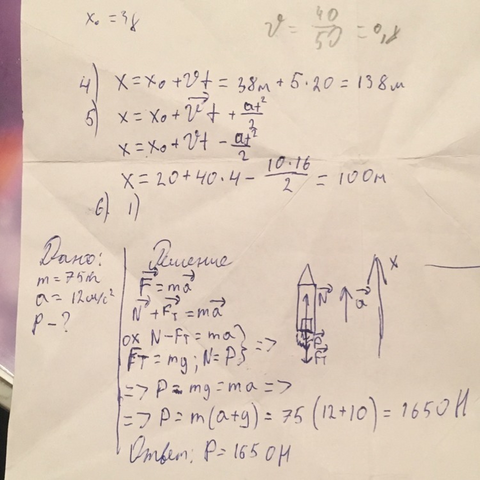 x₀ = 38
v = 40/50 = 0,8
4) x = x₀ + vt = 38м + 5·20 = 138м
5) x = x₀ + v⃗t + at²/2
x = x₀ + vt - at²/2
x = 20 + 40·4 - 10·16/2 = 100м
6) 1)
Дано:
m = 75т
a = 12м/с²
P - ?
Решение
F⃗ = ma⃗
N⃗ + F⃗т = ma⃗
ox N - Fт = ma}
Fт = mg; N = P} =>
=> P = mg = ma =>
=> P = m(a+g) = 75(12+10) = 1650Н
Ответ: P = 1650Н
N⃗
P⃗
F⃗т
a⃗
x